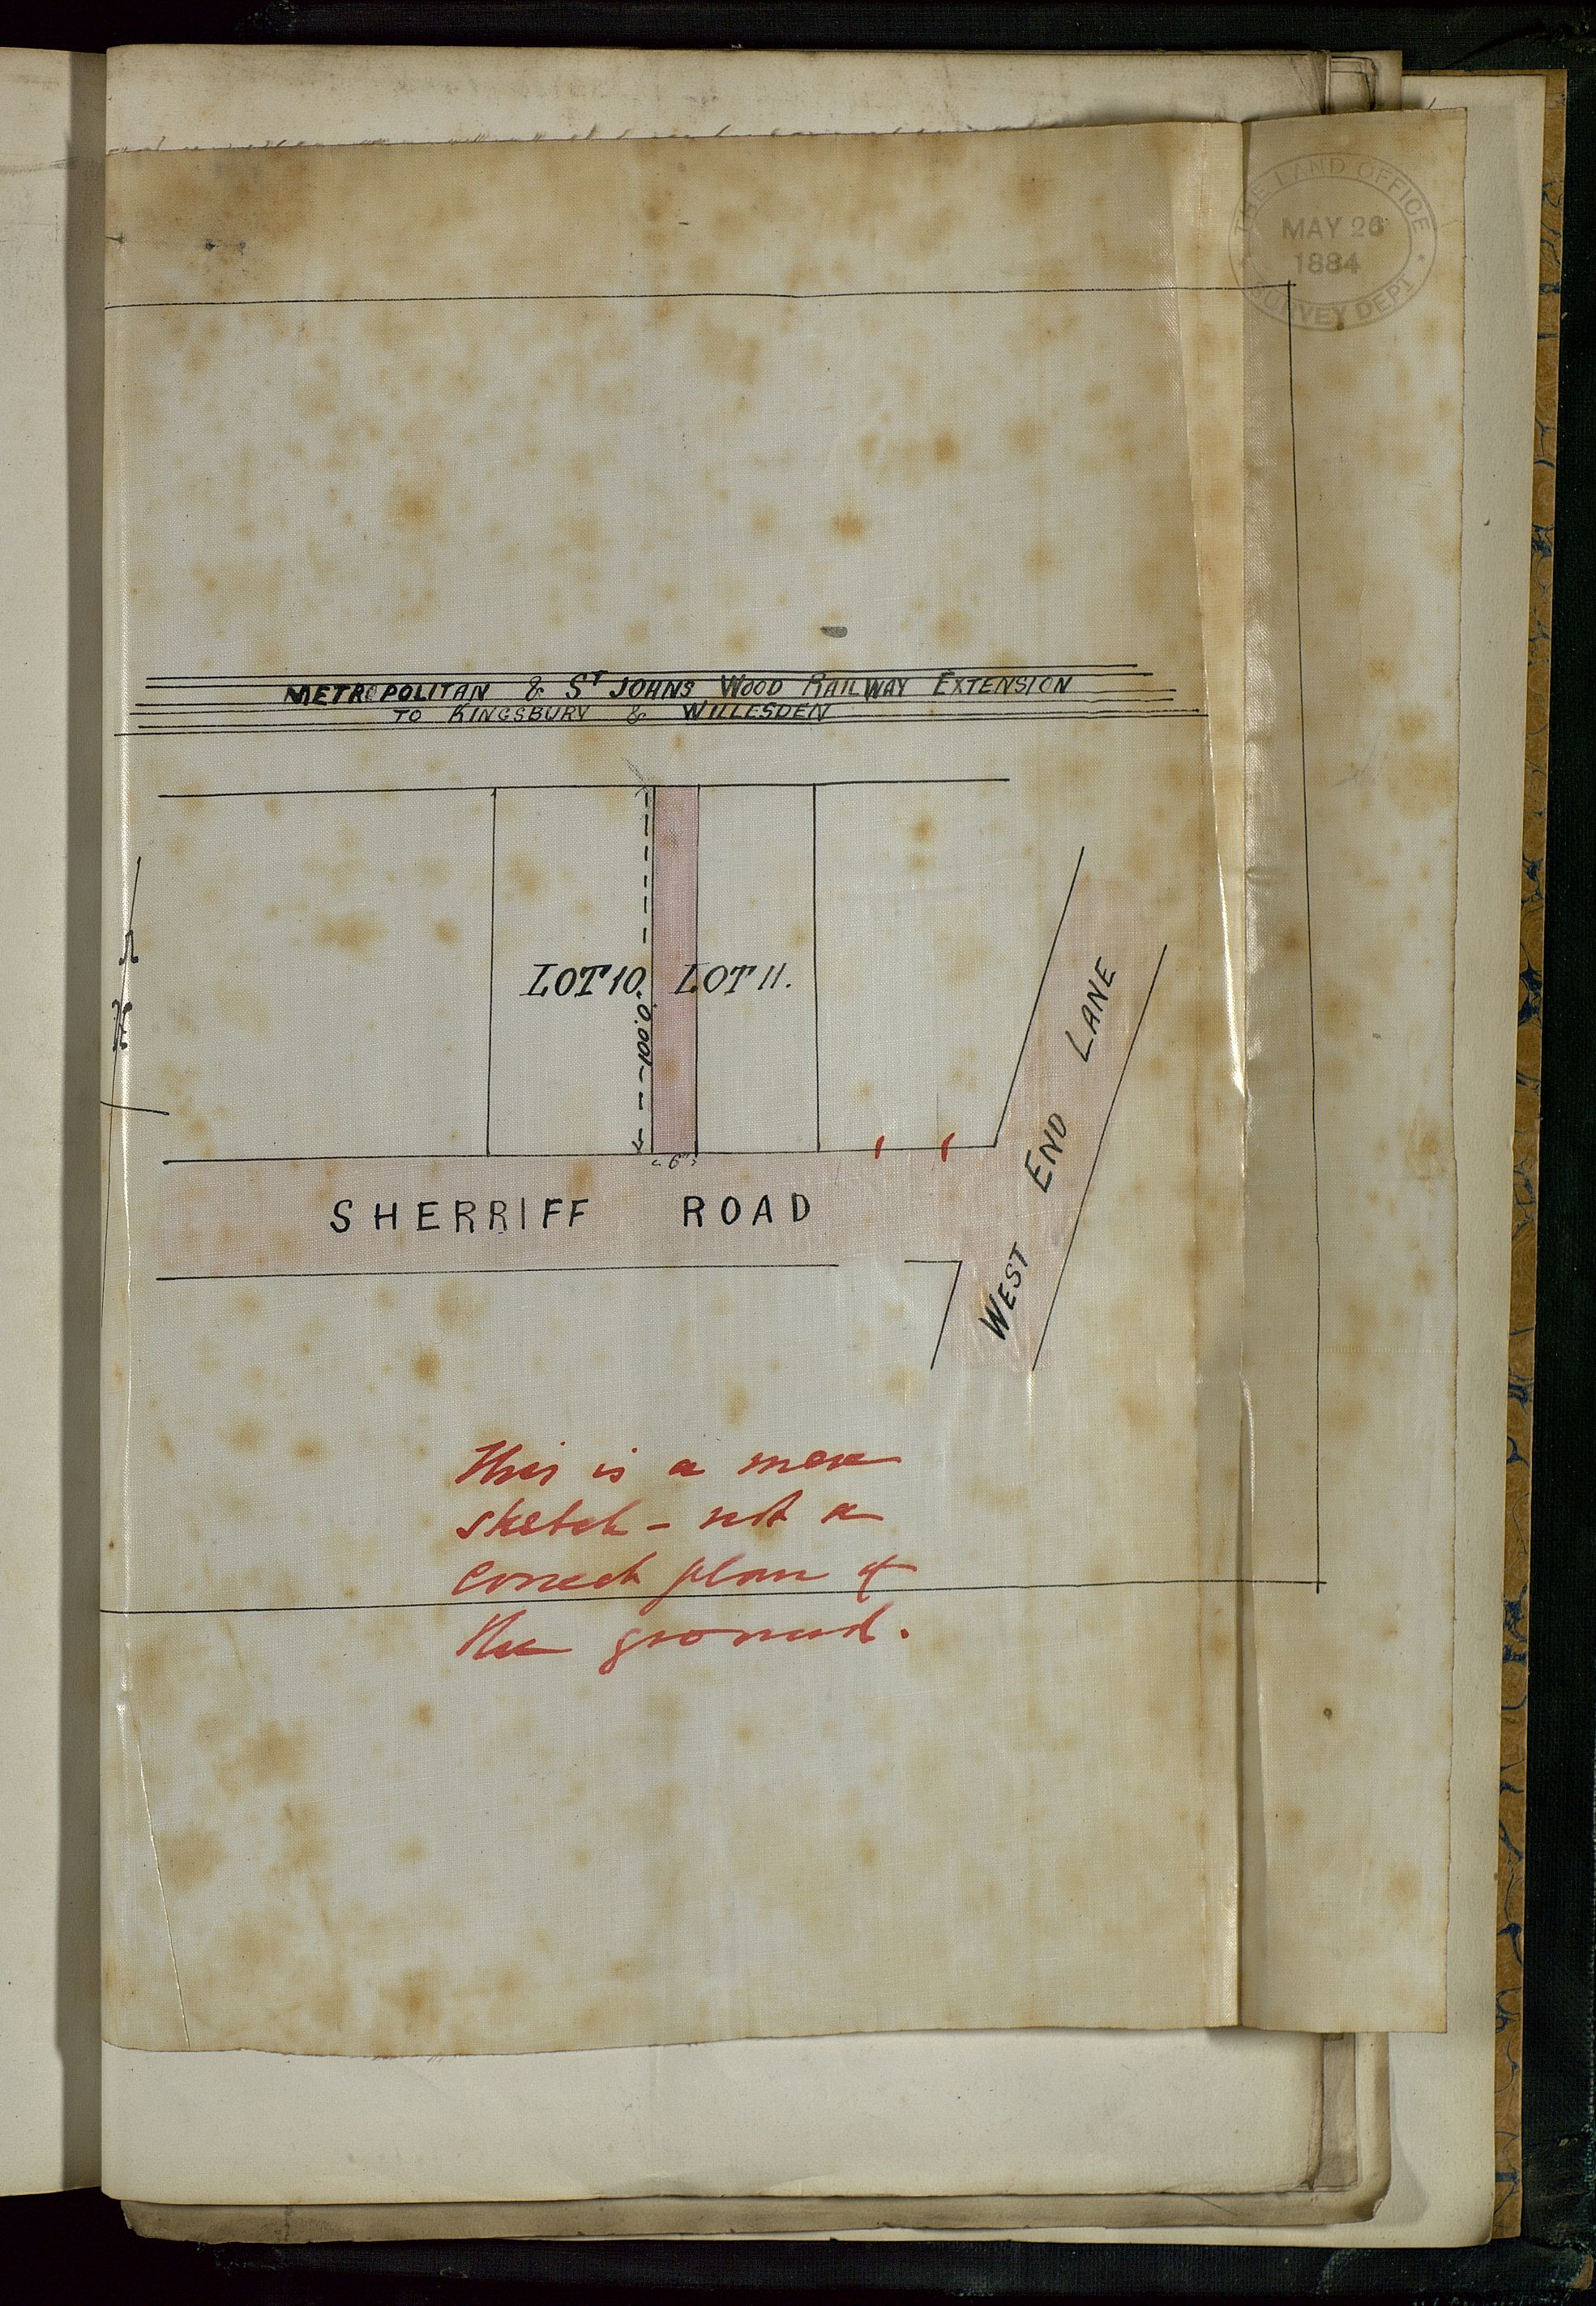 THE LAND OFFICE
MAY 26
1884
SURVEY DEPT
METROPOLITAN & ST JOHNS WOOD RAILWAY EXTENSION
TO KINGSBURY & WILLESDEN
LOT 10.
LOT 11.
100.0
6
SHERRIFF ROAD
WEST END LANE
This is a mere
sketch - not a
correct plan of
the ground.